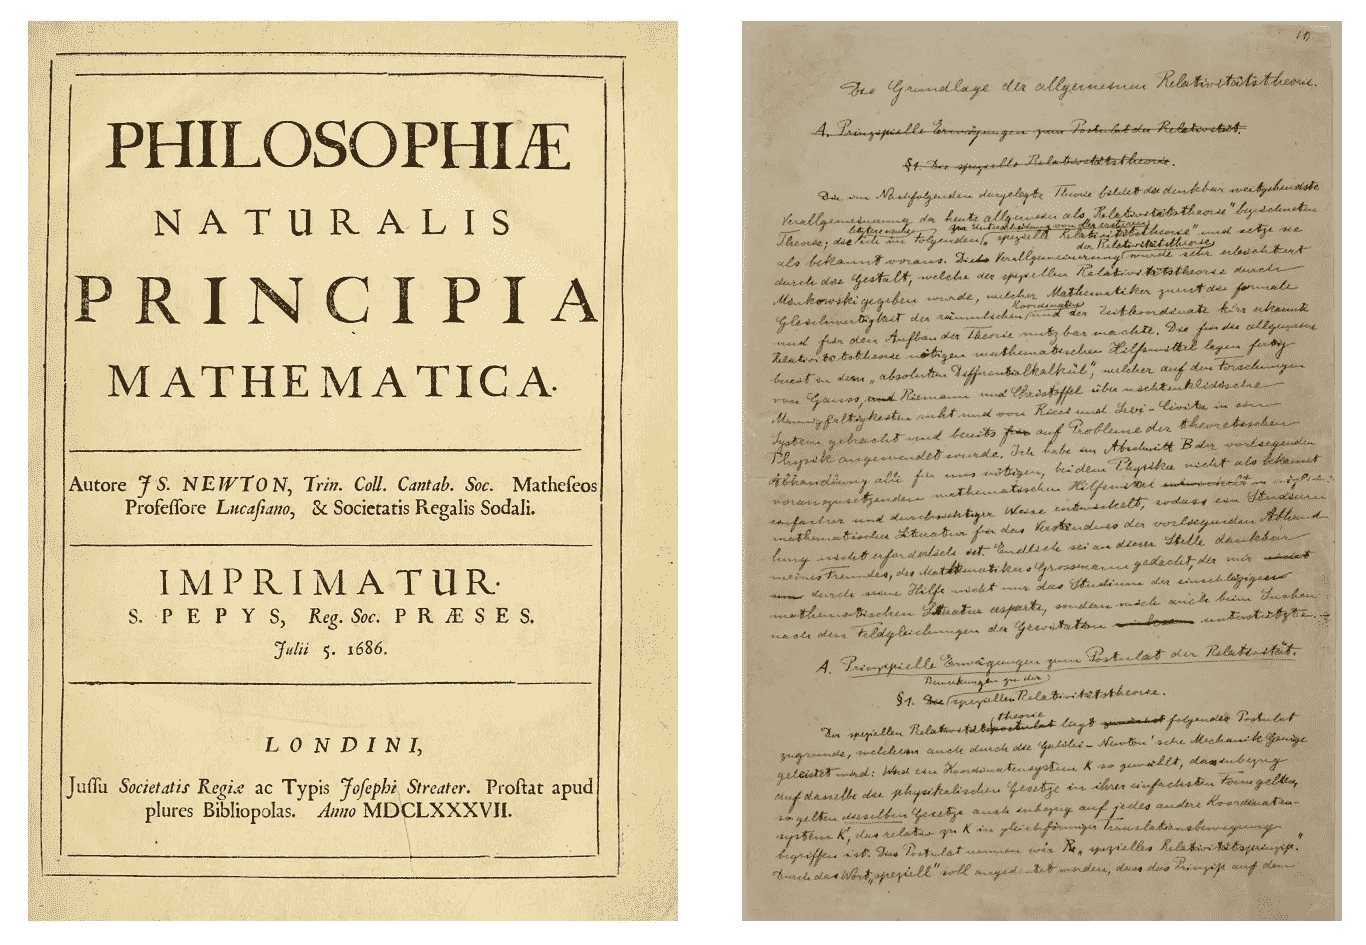 PHILOSOPHIÆ
NATURALIS
PRINCIPIA
MATHEMATICA.
Autore JS. NEWTON, Trin. Coll. Cantab. Soc. Matheſeos
Profeſſore Lucaſiano, & Societatis Regalis Sodali.
IMPRIMATUR.
S. PEPYS, Reg. Soc. PRÆSES.
Julii 5. 1686.
LONDINI,
Juſſu Societatis Regiæ ac Typis Joſephi Streater. Proſtat apud
plures Bibliopolas. Anno MDCLXXXVII.
Die Grundlage der allgemeinen Relativitätstheorie.
A. Prinzipielle Erwägungen zum Postulat der Relativität.
§1. Die spezielle Relativitätstheorie.
Die im Nachfolgenden dargelegte Theorie bildet die denkbar weitgehendste
Verallgemeinerung der heute allgemein als „Relativitätstheorie" bezeichneten
letztere nenne zur Unterscheidung von der ersteren
Theorie; die ich im folgenden „spezielle Relativitätstheorie" und setze sie
der Relativitätstheorie
als bekannt voraus. Die Verallgemeinerung wurde sehr erleichtert
durch die Gestalt, welche der speziellen Relativitätstheorie durch
Minkowski gegeben wurde, welcher Mathematiker zuerst die formale
Koordinaten
Gleichwertigkeit der räumlichen und der Zeitkoordinate klar erkannte
und für den Aufbau der Theorie nutzbar machte. Die für die allgemeine
Relativitätstheorie nötigen mathematischen Hilfsmittel lagen fertig
bereit in dem „absoluten Differentialkalkül", welcher auf den Forschungen
von Gauss, und Riemann und Christoffel über nichteuklidische
Mannigfaltigkeiten ruht und von Ricci und Levi-Civita in ein
System gebracht und bereits für auf Probleme der theoretischen
Physik angewendet wurde. Ich habe im Abschnitt B der vorliegenden
Abhandlung alle für uns nötigen, bei dem Physiker nicht als bekannt
vorauszusetzenden mathematischen Hilfsmittel in möglichst
einfacher und durchsichtiger Weise entwickelt, sodass ein Studium
mathematischer Literatur für das Verständnis der vorliegenden Abhand-
lung nicht erforderlich ist. Endlich sei an dieser Stelle dankbar
meines Freundes, des Mathematikers Grossmann gedacht, der mir
durch seine Hilfe nicht nur das Studium der einschlägigen
mathematischen Literatur ersparte, sondern mich auch beim Suchen
nach den Feldgleichungen der Gravitation unterstützte.
A. Prinzipielle Erwägungen zum Postulat der Relativität.
Bemerkungen zu der
§1. Die speziellen Relativitätstheorie.
theorie
Der speziellen Relativitätspostulat liegt folgendes Postulat
zugrunde, welchem auch durch die Galilei-Newton'sche Mechanik Genüge
geleistet wird: Wird ein Koordinatensystem K so gewählt, dass inbezug
auf dasselbe die physikalischen Gesetze in ihrer einfachsten Form gelten,
so gelten dieselben Gesetze auch inbezug auf jedes andere Koordinaten-
system K', das relativ zu K in gleichförmiger Translationsbewegung
begriffen ist. Dies Postulat nennen wir „spezielles Relativitätsprinzip."
Durch das Wort „speziell" soll angedeutet werden, dass das Prinzip auf den